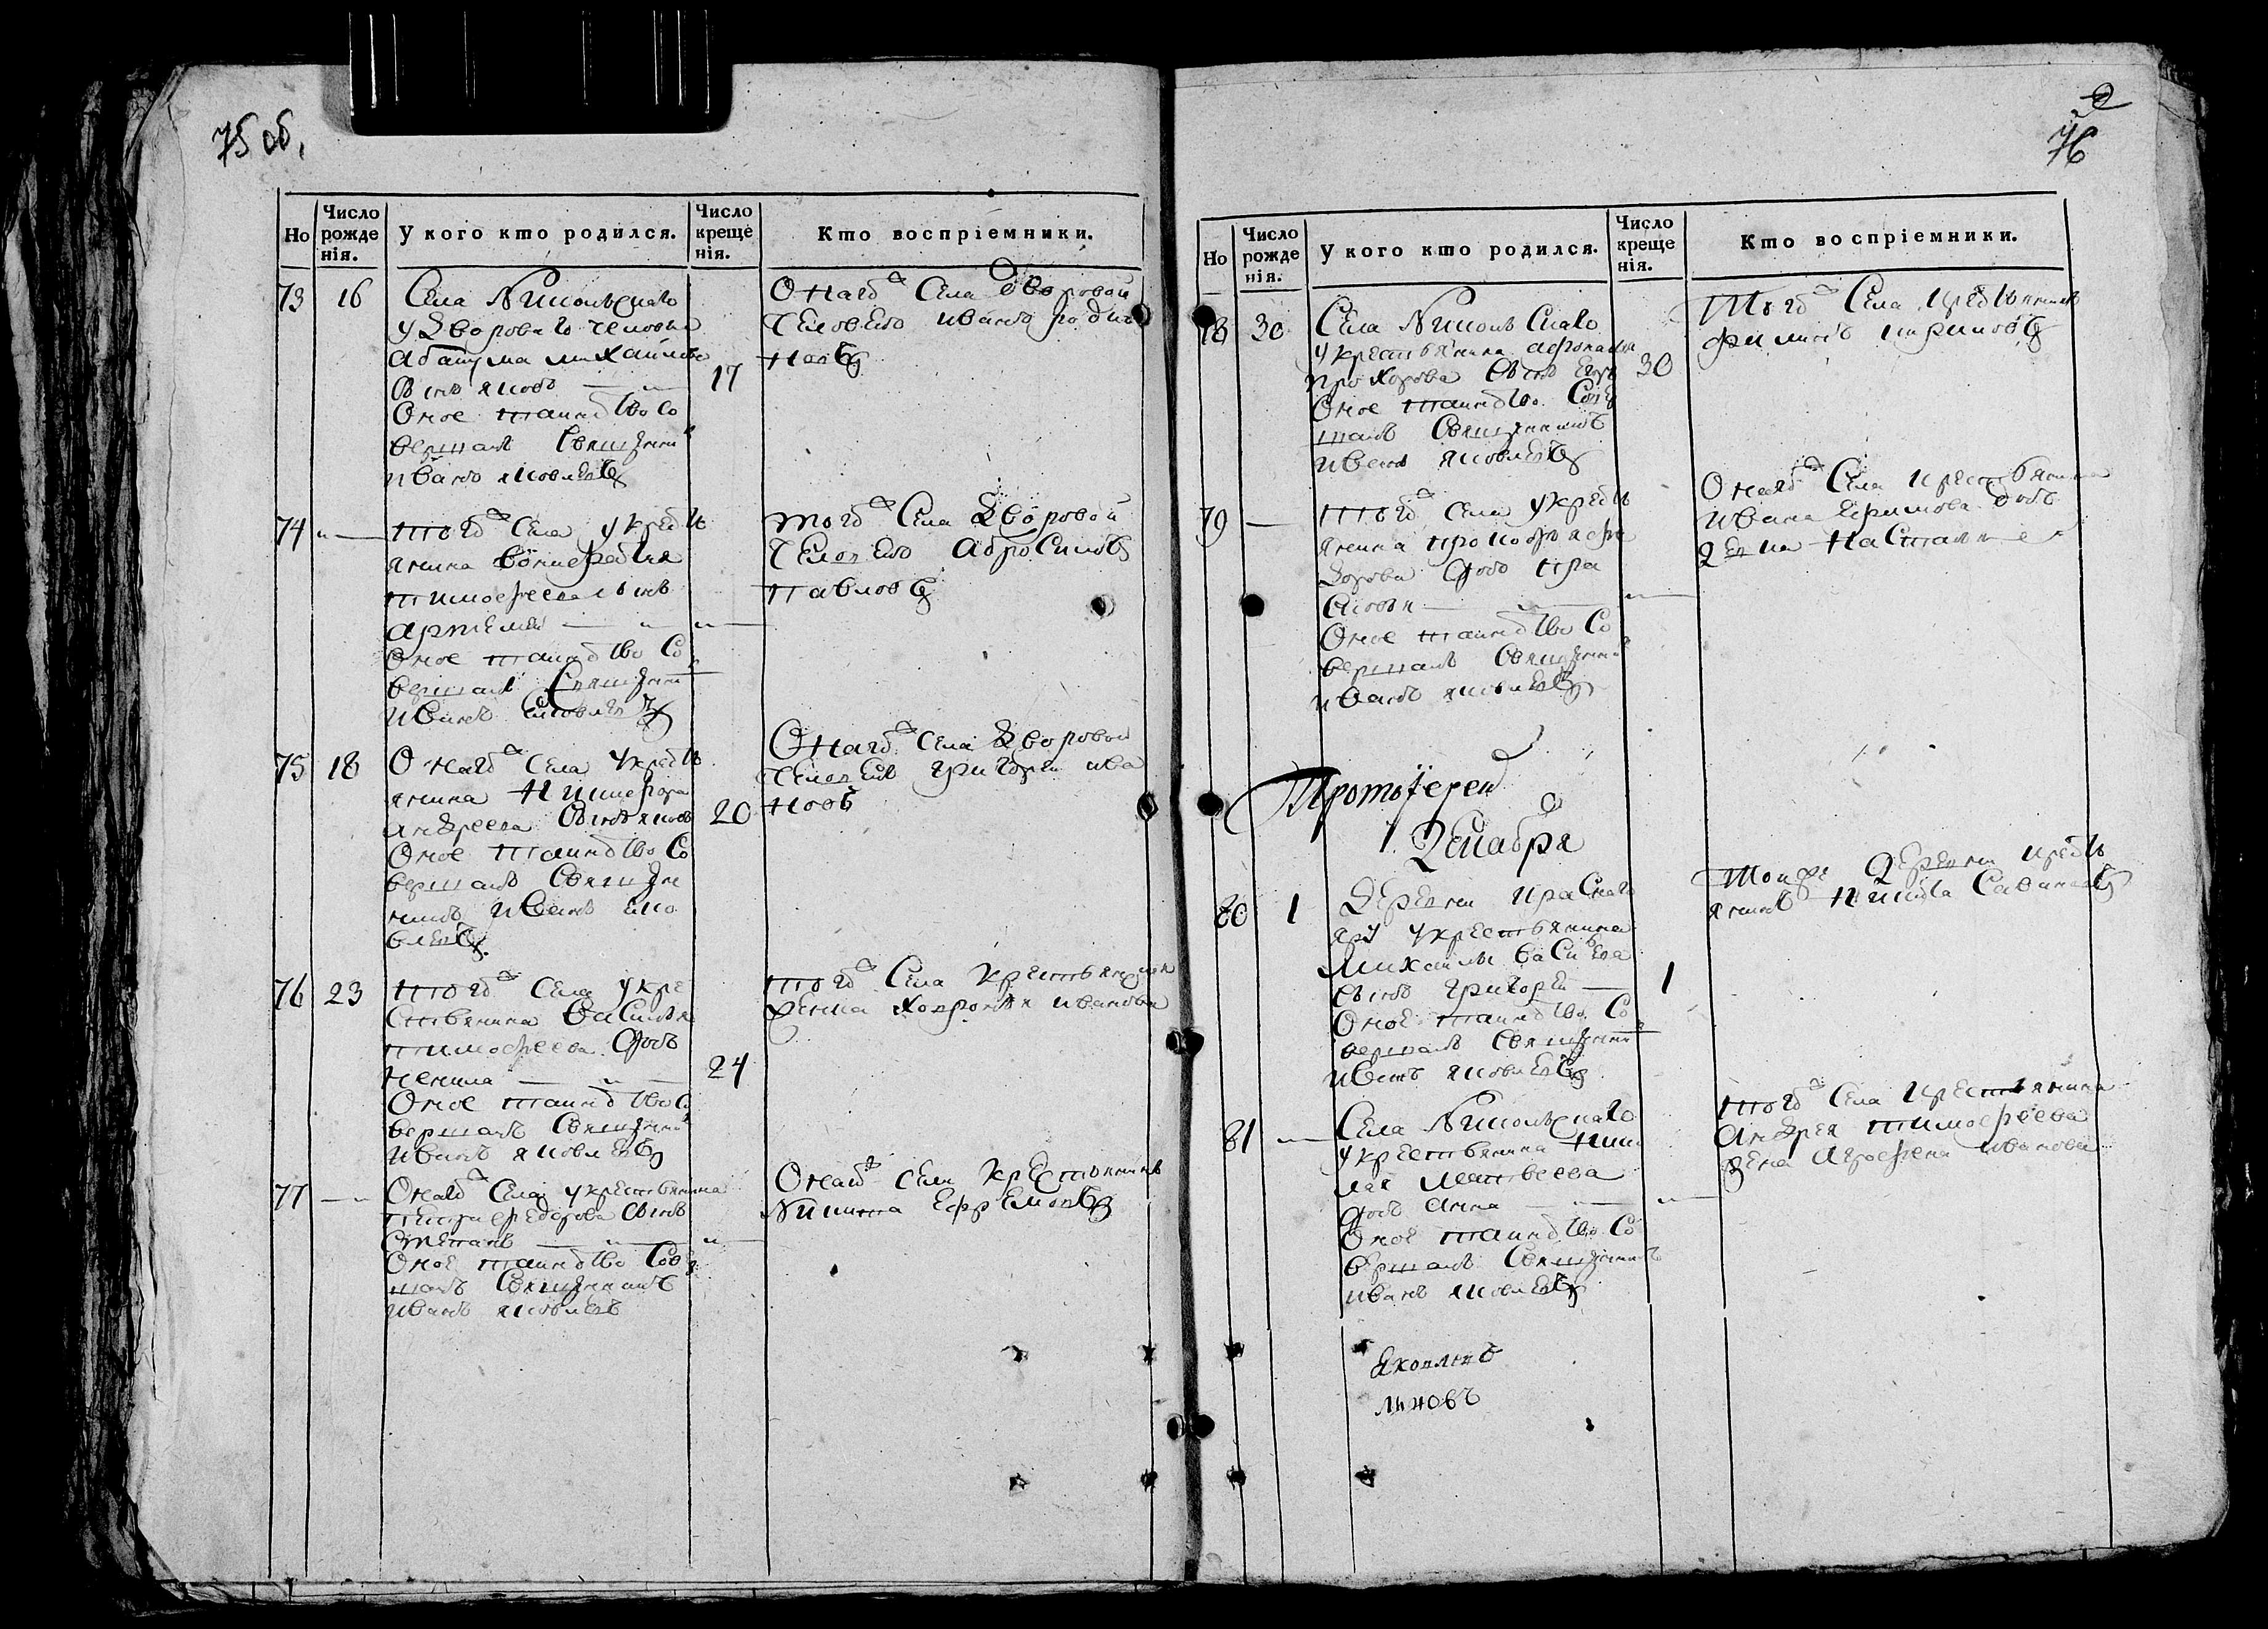 75 об.
Но
Число рожденія.
У кого кто родился.
Число крещенія.
Кто воспріемники.
73 16
Села Никольскаго
у Двороваго человека
Михайлова
сынъ Яковъ
Оное таинство со
вершалъ Священник
Иванъ Яковлевъ
17
Онагож Села дворовой
человекъ Иванъ Родио
новъ
74
тогож Села у крестья
янина
тимофеева сынъ
артемей
Оное таинство со
вершалъ Священник
Иванъ Яковлевъ
тогож Села Дворовой
человекъ Абросимъ
Павловъ
75 18
Онагож Села у кресть
янина Никифора
Андреева сынъ Яковъ
Оное таинство со
вершалъ Священ
никъ Иванъ Яко
влевъ
20
Онагож Села Дворовой
человекъ Григорей Ива
новъ
76 23
тогож Села у кре
стьянина Василья
тимофеева дочь
Ненила
Оное таинство со
вершалъ Священник
Иванъ Яковлевъ
24
тогож Села крестьянина
Ивановна
77
Онагож Села у крестьянина
Петра Федорова сынъ
Степанъ
Оное таинство совер
шалъ Священникъ
Иванъ Яковлевъ
Онагож Села крестьянинъ
Никита Ефремовъ
76
Но
Число рожденія.
У кого кто родился.
Число крещенія.
Кто воспріемники.
78 30
Села Никольскаго
у крестьянина Афонасья
Прохорова сынъ Егоръ
Оное таинство совер
шалъ Священникъ
Иванъ Яковлевъ
30
тогож Села крестьянинъ
Филипъ
79
тогож Села у кресть
янина Прокофья Фе
дорова дочь Пра
сковья
Оное таинство со
вершалъ Священник
Иванъ Яковлевъ
Онагож Села крестьянина
Ивана дочь
девка Наталия
Протоіерей
Декабря
80 1
Деревни Краснаго
яру у крестьянина
Михайлы Васильева
сынъ Григорей
Оное таинство со
вершалъ Священник
Иванъ Яковлевъ
1
тойже Деревни кресть
янинъ Никита Савинъ
81
Села Никольскаго
у крестьянина Нико
лая Матвеева
дочь Анна
Оное таинство со
вершалъ Священникъ
Иванъ Яковлевъ
тогож Села крестьянина
Андрея тимофеева
жена Агрофена Иванова
Яковлевъ